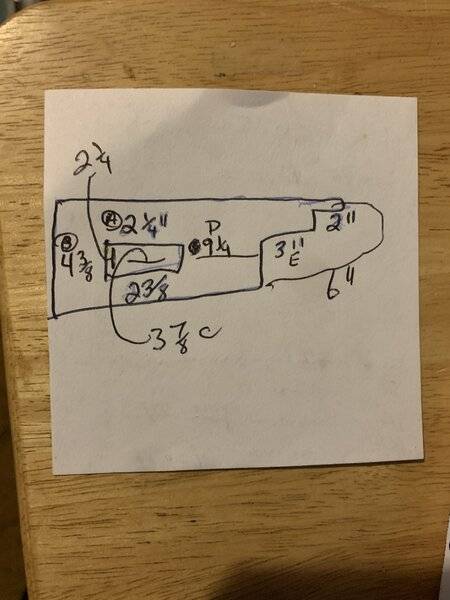 2 1/4
A 2 1/4"
B 4 3/8
D
9 1/4
2"
3"
E
6"
2 3/8
3 7/8 C